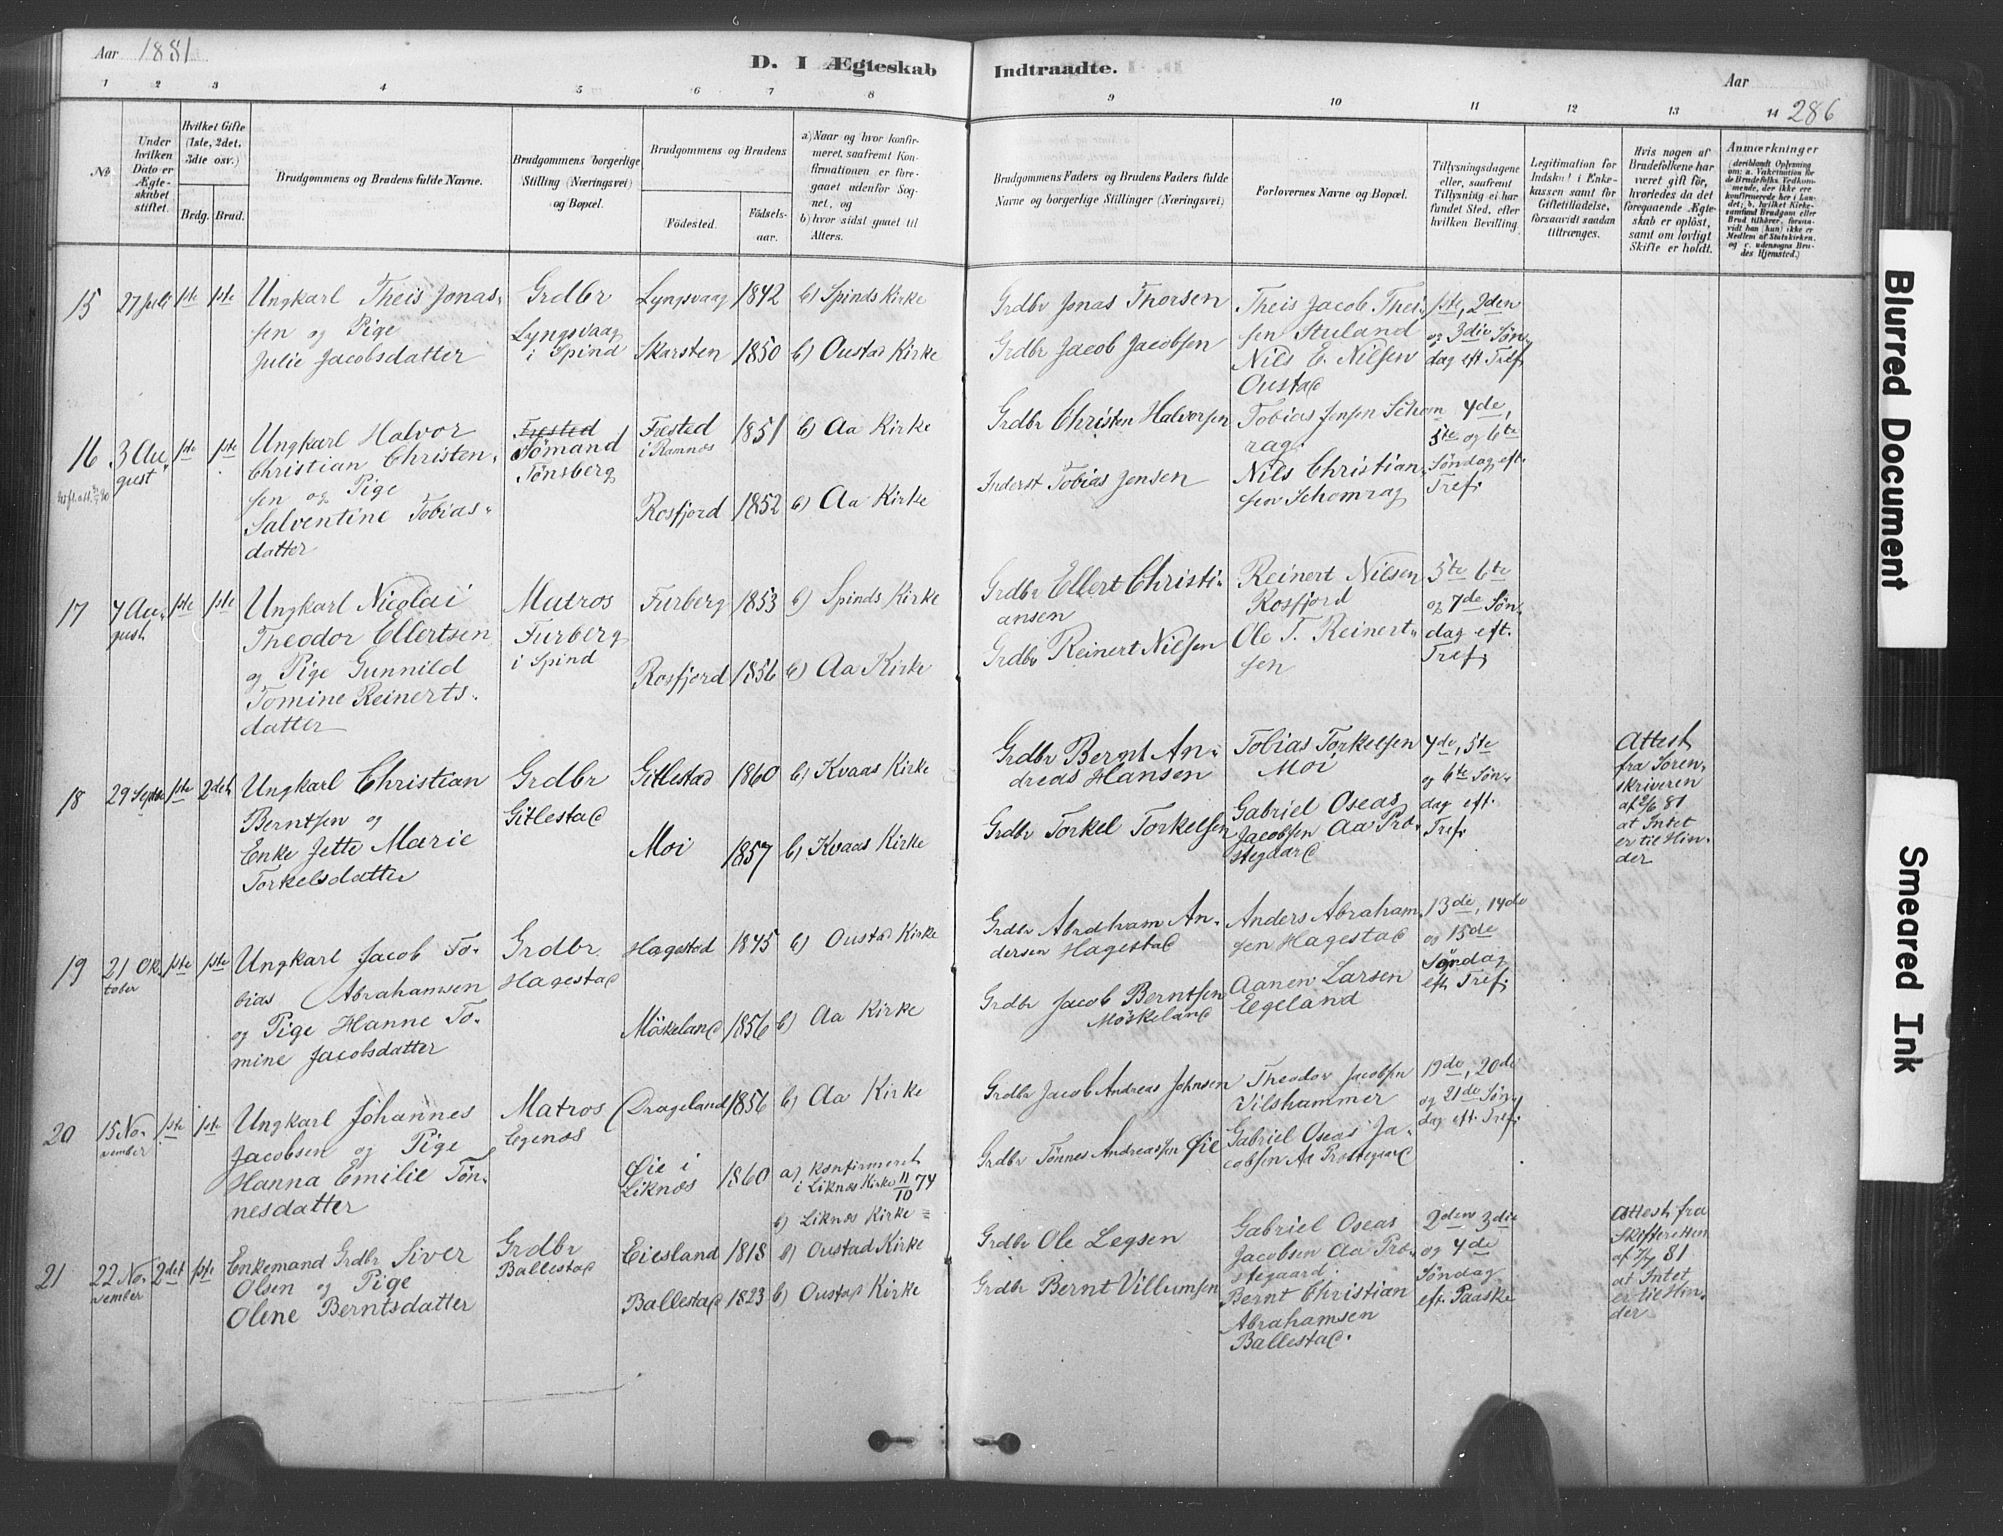 Aar 1881
D. I Ægteskab Indtraadte.
Aar
286
1 2 3 4 5 6 7 8 9 10 11 12 13 14
No
Under hvilken Dato er Ægteskabet stiftet.
Hvilket Gifte (1ste, 2det, 3die osv.)
Brdg. Brud.
Brudgommens og Brudens fulde Navne.
Brudgommens borgerlige Stilling (Næringsvei) og Bopæl.
Brudgommens og Brudens
Fødested.
Fødselsaar.
a) Naar og hvor konfirmeret, saafremt Konfirmationen er foregaaet udenfor Sognet, og
b) hvor sidst gaaet til Alters.
Brudgommens Faders og Brudens Faders fulde Navne og borgerlige Stillinger (Næringsvei)
Forlovernes Navne og Bopæl.
Tillysningsdagene eller, saafremt Tillysning ei har fundet Sted, efter hvilken Bevilling.
Legitimation for Indskud i Enkekassen samt for Giftetilladelse, forsaavidt saadan tiltrænges.
Hvis nogen af Brudefolkene har været gift før, hvorledes da det foregaaende Ægteskab er opløst, samt om lovligt Skifte er holdt.
Anmærkninger
15
27 Juli
1ste 1ste
Ungkarl Theis Jonas-
sen og Pige
Julie Jacobsdatter
Grdbr
Lyngsvaag
i Spind
Lyngsvaag 1842 b) Spinds Kirke
Skarsten 1850 b) Oustad Kirke
Grdbr Jonas Thorsen
Grdbr Jacob Jacobsen
Theis Jacob Thei-
sen Stuland
Nils E. Nilsen
Oustad
1ste, 2den
og 3die Søn-
dag eft. Tref.
16
3 Au-
gust
1ste 1ste
Ungkarl Halvor
Christian Christen-
sen og Pige
Salventine Tobias-
datter
Fresتed
Sømand
Tønsberg
Frested
i Ramnæs
1851 b) Aa Kirke
Rosfjord 1852 b) Aa Kirke
Grdbr Christen Halvorsen
Inderst Tobias Jensen
Tobias Jensen Schom
rag.
Nils Christian-
sen Schomrag
4de,
5te og 6te
Søndag eft.
Tref.
17
7 Au-
gust
1ste 1ste
Ungkarl Nicolai
Theodor Ellertsen
og Pige Gunnild
Tomine Reinerts-
datter
Matros
Furberg
i Spind
Furberg 1853 b) Spinds Kirke
Rosfjord 1856 b) Aa Kirke
Grdbr Ellert Christi-
ansen
Grdbr Reinert Nilsen
Reinert Nilsen
Rosfjord
Ole T. Reinert-
sen
5te 6te
og 7de Søn-
dag eft.
Tref.
18
29 Septbr
1ste 2det
Ungkarl Christian
Berntsen og
Enke Jette Marie
Torkelsdatter
Grdbr
Gitlestad
Gitlestad 1860 b) Kvaas Kirke
Moi 1857 b) Kvaas Kirke
Grdbr Bernt An-
dreas Hansen
Grdbr Torkel Torkelsen
Tobias Torkelsen
Moi
Gabriel Oseas
Jacobsen Aa Præ-
stegaard
4de, 5te
og 6te Søn-
dag eft.
Tref.
Attest
fra Soren-
skriveren
af 2/6 81
at Intet
er til Hin-
der
19
21 Ok-
tober
1ste 1ste
Ungkarl Jacob To-
bias Abrahamsen
og Pige Hanne To-
mine Jacobsdatter
Grdbr
Hagestad
Hagestad 1845 b) Oustad Kirke
Møskeland 1856 b) Aa Kirke
Grdbr Abraham An-
dersen Hagestad
Grdbr Jacob Berntsen
Møskeland
Anders Abraham-
sen Hagestad
Aanen Larsen
Egeland
13de, 14de
og 15de
Søndag
eft Tref.
20
15 No-
vember
1ste 1ste
Ungkarl Johannes
Jacobsen og Pige
Hanna Emilie Tøn-
nesdatter
Matros
Egenæs
Drageland 1856 b) Aa Kirke
Øie i
Liknæs
1860
a) konfirmeret
i Liknæs Kirke 11/10 74
b) Liknæs Kirke
Grdbr Jacob Andreas Johnsen
Grdbr Tønnes Andreassen Øie
Theodor Jacobsen
Vilshammer
Gabriel Oseas Ja-
cobsen Aa Præstegaard
19de, 20de
og 21de Søn-
dag eft. Tref.
21
22 No-
vember
2det 1ste
Enkemand Grdbr Siver
Olsen og Pige
Olene Berntsdatter
Grdbr
Ballestad
Eiesland 1818 b) Oustad Kirke
Ballestad 1823 b) Oustad Kirke
Grdbr Ole Legsen
Grdbr Bernt Villumsen
Gabriel Oseas
Jacobsen Aa Præ-
stegaard.
Bernt Christian
Abrahamsen
Ballestad.
2den 3die
og 4de
Søndag
eft. Paaske
Attest fra
Skifteretten
af 7/7 81
at Intet
er til Hin-
der
Blurred Document
Smeared Ink